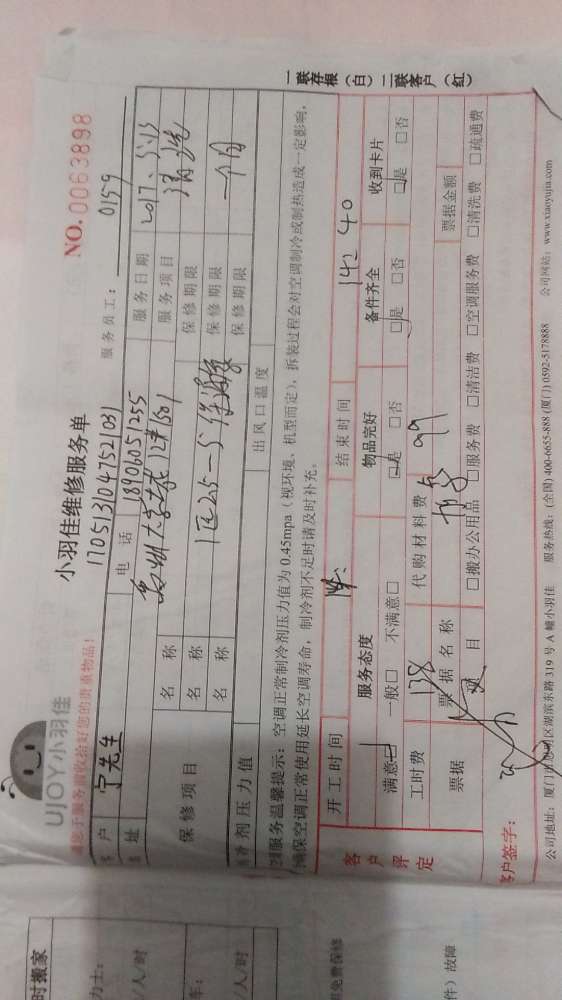 UJOY小羽佳
小羽佳维修服务单
NO.0063898
请您于服务前收拾好您的贵重物品!
1705131047521031
服务员工: 0159
客户 宁先生 电话 18906051255 服务日期 2017、5、13
地址 服务项目 清洗
保修项目 名称 保修期限
名称 1匹2.5一 保修期限
名称 保修期限 一个月
制剂压力值 出风口温度
服务温馨提示:空调正常制冷剂压力值为0.45mpa(视环境、机型而定),拆装过程会对空调制冷或制热造成一定影响,
确保空调正常使用延长空调寿命,制冷剂不足时请及时补充。
一联存根(白)二联客户(红)
开工时间 结束时间 14: 40
客户评定 服务态度 物品完好 备件齐全 收到卡片
满意 一般□ 不满意□ □是 □否 □是 □否 □是 □否
工时费 138 代购材料费 99
票据 票据名称 票据金额
项目 □搬办公用品 □服务费 □清洁费 □空调服务费 □清洗费 □疏通费
客户签字:
公司地址:厦门市思明区湖滨东路319号A幢小羽佳 服务热线:(全国)400-6655-888(厦门)0592-5178888 公司网站:www.xiaoyujia.com
时搬家
力士:
/人/时
车:
/人/时
免费保修
件)故障